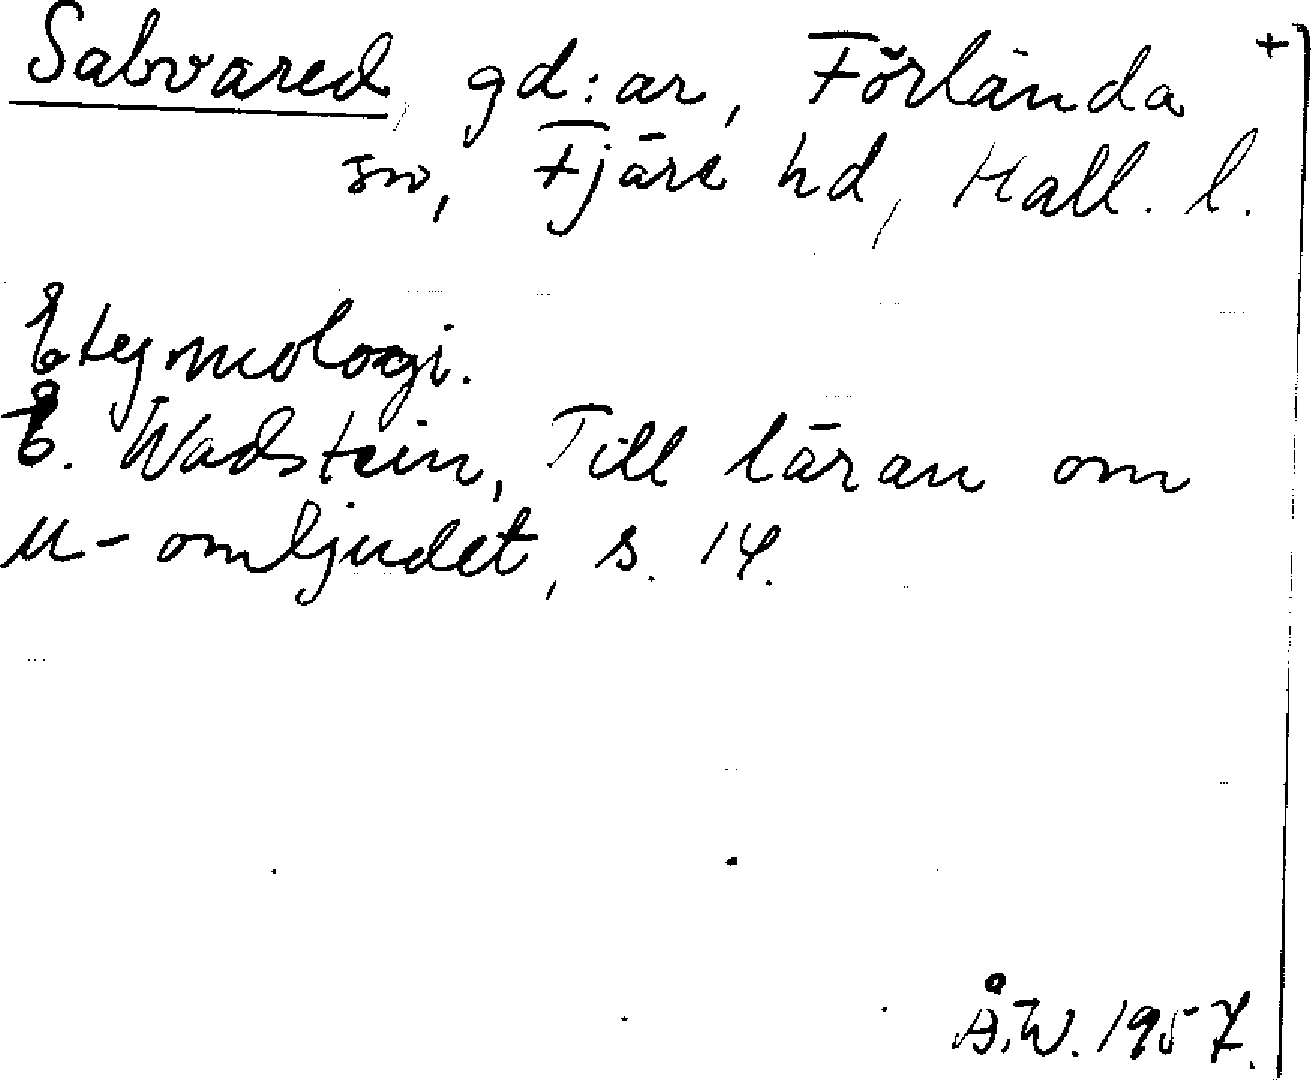 Sabvared, gd:ar, Förlanda +
sn, Fjäre hd, Hall. l.
Etymologi.
E. Wadstein, Till läran om
u-omljudet, s. 14.
Å.W. 1957.